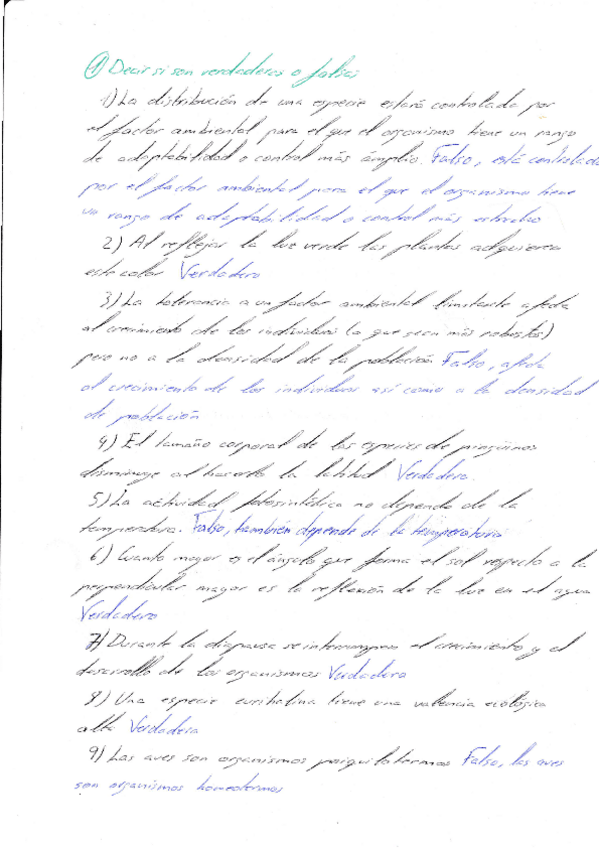 ① Decir si son verdaderas o falsas
1) La distribución de una especie estará controlada por
el factor ambiental para el que el organismo tiene un rango
de adaptabilidad o control más ámplio. Falso, está controlada
por el factor ambiental para el que el organismo tiene
un rango de adaptabilidad o control más estrecho
2) Al reflejar la luz verde las plantas adquieren
este color Verdadero
3) La tolerancia a un factor ambiental limitante afecta
al crecimiento de los individuos (a que sean más robustos)
pero no a la densidad de la población. Falso, afecta
al crecimiento de los individuos así como a la densidad
de población
4) El tamaño corporal de las especies de pingüinos
disminuye al hacerlo la latitud Verdadero.
5) La actividad fotosintética no depende de la
temperatura. Falso, también depende de la temperatura
6) Cuanto mayor es el ángulo que forma el sol respecto a la
perpendicular mayor es la reflexión de la luz en el agua
Verdadero
7) Durante la diapausa se interrumpen el crecimiento y el
desarrollo de los organismos Verdadero
8) Una especie eurihalina tiene una valencia ecológica
alta Verdadera
9) Las aves son organismos poiquilotermos Falso, las aves
son organismos homeotermos